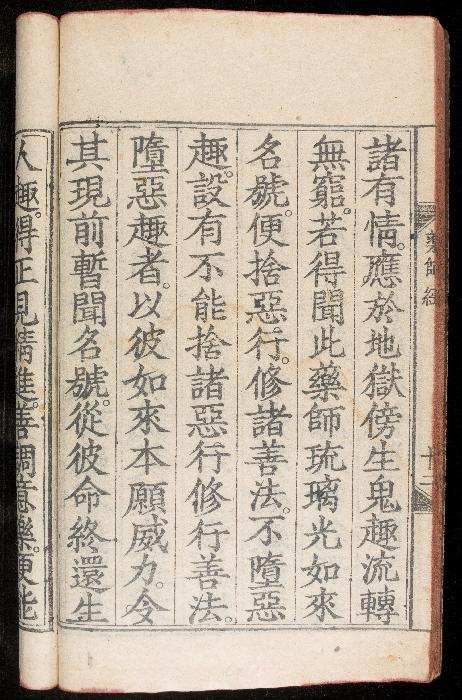 藥師經
十二
諸有情。應於地獄傍生鬼趣流轉
無窮。若得聞此藥師琉璃光如來
名號。便捨惡行。修諸善法。不墮惡
趣。設有不能捨諸惡行修行善法。
墮惡趣者。以彼如來本願威力。令
其現前暫聞名號。從彼命終還生
人趣。得正見精進。善調意樂。便能